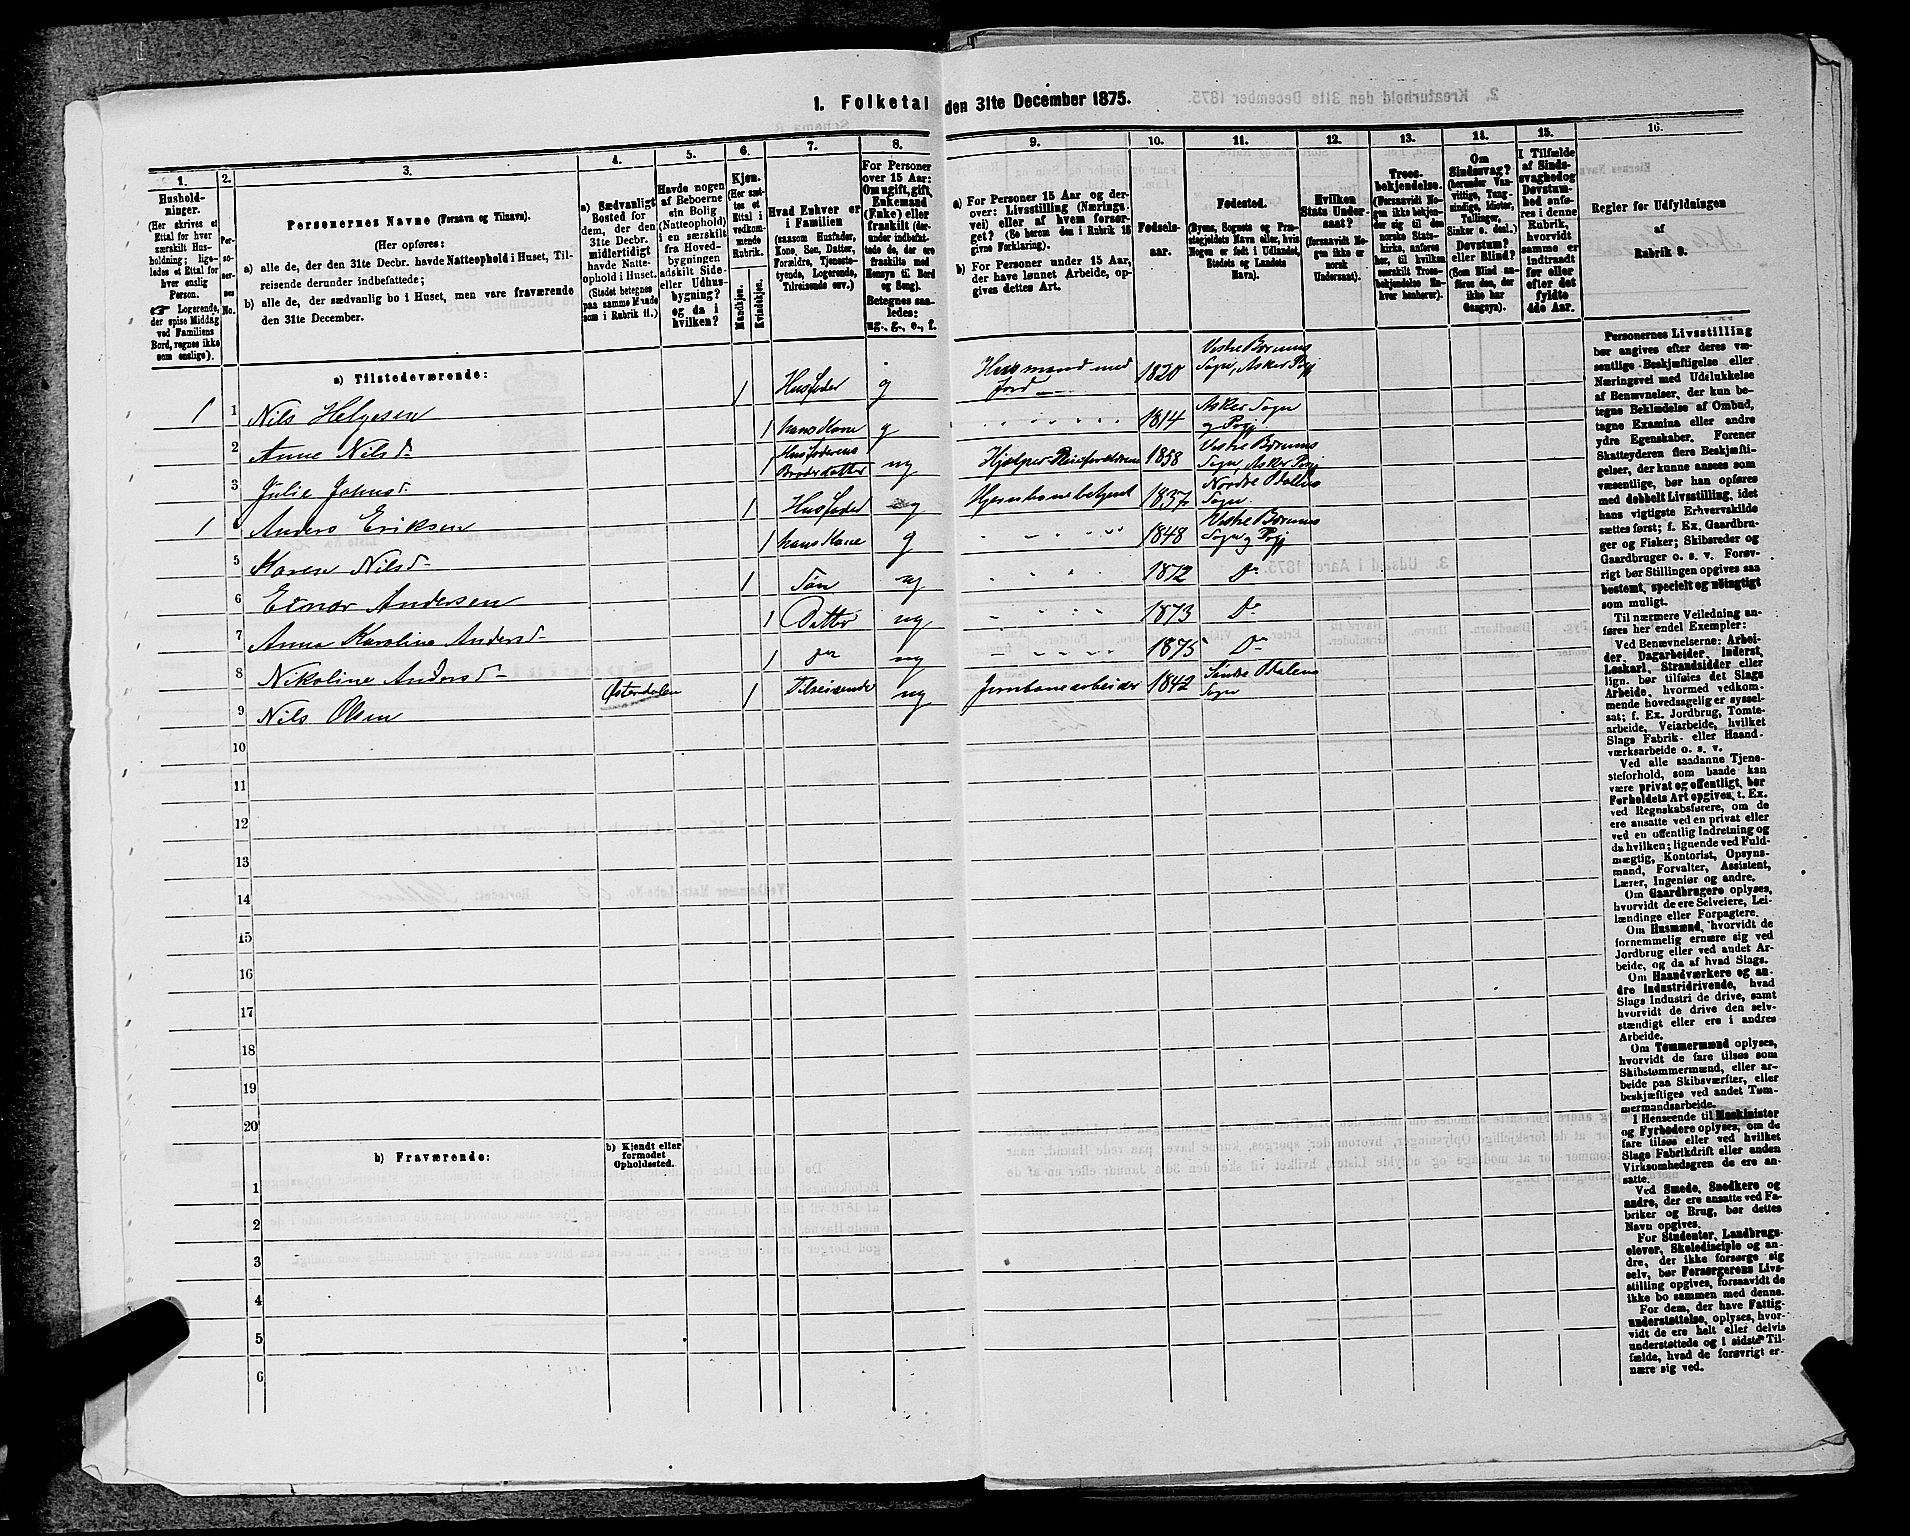 1. Folketal den 31te December 1875.
1.
Hushold-
ninger.
(Her skrives et
Ettal for hver
særskilt Hus-
holdning; lige-
ledes et Ettal for
hver enslig
Person.
☞ Logerende,
der spise Middag
ved Familiens
Bord, regnes ikke
som enslige).
2.
Per-
soner-
nes
No.
3.
Personernes Navne (Fornavn og Tilnavn).
(Her opføres:
a) alle de, der den 31te Decbr. havde Natteophold i Huset, Til-
reisende derunder indbefattede;
b) alle de, der sædvanlig bo i Huset, men vare fraværende
den 31te December.
4.
a) Sædvanligt
Bosted for
dem, der den
31te Decbr.
midlertidigt
havde Natte-
ophold i Huset.
(Stedet betegnes
paa samme Maade
som i Rubrik 11.)
5.
Havde nogen
af Beboerne
sin Bolig
(Natteophold)
i en særskilt
fra Hoved-
bygningen
adskilt Side-
eller Udhus-
bygning?
og da i
hvilken?
6.
Kjøn.
(Her sæt-
tes et
Ettal i
vedkom-
mende
Rubrik.
Mandkjøn.
Kvindekjøn.
7.
Hvad Enhver er
i Familien
(saasom Husfader,
Kone, Søn, Datter,
Forældre, Tjeneste-
tyende, Logerende,
Tilreisende osv.)
8.
For Personer
over 15 Aar:
Om ugift, gift,
Enkemand
(Enke) eller
fraskilt (der-
under indbefat-
tede de, der ere
fraskilte med
Hensyn til Bord
og Seng).
Betegnes saa-
ledes:
ug., g., e., f.
9.
a) For Personer 15 Aar og der-
over: Livsstilling (Nærings-
vei) eller af hvem forsør-
get? (Se herom den i Rubrik 16
givne Forklaring).
b) For Personer under 15 Aar,
der have lønnet Arbeide, op-
gives dettes Art.
10.
Fødsels-
aar.
11.
Fødested.
(Byens, Sognets og Præ-
stegjeldets Navn eller, hvis
Nogen er født i Udlandet,
Stedets og Landets
Navn).
12.
Hvilken
Stats Under-
saat?
(forsaavidt No-
gen ikke er
norsk
Undersaat).
13.
Troes-
bekjendelse.
(Forsaavidt No-
gen ikke bekjen-
der sig til den
norske Stats-
kirke, anføres
her, til hvilken
særskilt Troes-
bekjendelse En-
hver henhører).
14.
Om
Sindssvag?
(herunder Van-
vittige, Tung-
sindige, Idioter,
Tullinger,
Sinker o. desl.)
Døvstum?
eller Blind?
(Som Blind an-
føres den, der
ikke har
Gangsyn).
15.
I Tilfælde
af Sinds-
svaghed og
Døvstum-
hed anfø-
res i denne
Rubrik,
hvorvidt
samme er
indtraadt
før eller
efter det
fyldte
4de Aar.
16.
Regler for Udfyldningen
af
Rubrik 9.
a) Tilstedeværende:
1 1 Nils Helgesen 1 Husfader g Husmand med Jord 1820 Vestre Bærums Sogn, Asker Pgj
2 Anne Nilsd. 1 hans Kone g " 1814 Asker Sogn og Pgj
3 Julie Johnsd. 1 Husfaderens Broderdatter ug Hjelper Pleieforældrene 1858 Vestre Bærums Sogn, Asker Pgj
1 4 Anders Eriksen 1 Husfader g Jernbanebetjent 1837 Nordre Odalens Sogn.
5 Karen Nilsd. 1 hans Kone g " 1848 Vestre Bærums Sogn og Pgj
6 Einar Andersen 1 Søn ug " 1872 Do
7 Anna Karoline Andersd. 1 Datter ug " 1873 Do
8 Nikoline Andersd. 1 do ug " 1875 Do
9 Nils Olsen Østerdalen 1 Tilreisende ug Jernbanearbeider 1842 Søndre Odalens Sogn
10
11
12
13
14
15
16
17
18
19
20
b) Fraværende:
b) Kjendt eller
formodet
Opholdssted.
1
2
3
4
5
6
Personernes Livsstilling
bør angives efter deres væ-
sentlige Beskjæftigelse eller
Næringsvei med Udelukkelse
af Benævnelser, der kun be-
tegne Beklædelse af Ombud,
tagne Examina eller andre
ydre Egenskaber. Forener
Skatteyderen flere Beskjæfti-
gelser, der kunne ansees som
væsentlige, bør han opføres
med dobbelt Livsstilling, idet
hans vigtigste Erhvervskilde
sættes først; f. Ex. Gaardbru-
ger og Fisker; Skibsreder og
Gaardbruger o. s. v. Forøv-
rigt bør Stillingen opgives saa
bestemt, specielt og nøiagtigt
som muligt.
Til nærmere Veiledning an-
føres her endel Exempler:
Ved Benævnelserne: Arbei-
der, Dagarbeider, Inderst,
Løskarl, Strandsidder eller
lign. bør tilføies det Slags
Arbeide, hvormed vedkom-
mende hovedsagelig er syssel-
sat; f. Ex. Jordbrug, Tomte-
arbeide, Veiarbeide, hvilket
Slags Fabrik- eller Haand-
værksarbeide o. s. v.
Ved alle saadanne Tjene-
steforhold, som baade kan
være privat og offentligt, bør
Forholdets Art opgives, t. Ex.
ved Regnskabsførere, om de
ere ansatte ved en privat eller
ved en offentlig Indretning og
da hvilken; lignende ved Fuld-
mægtig, Kontorist, Opsyns-
mand, Forvalter, Assistent,
Lærer, Ingeniør og andre.
Om Gaardbrugere oplyses,
hvorvidt de ere Selveiere, Lei-
lændinge eller Forpagtere.
Om Husmænd, hvorvidt de
fornemmelig ernære sig ved
Jordbrug eller ved andet Ar-
beide, og da af hvad Slags.
Om Haandværkere og an-
dre Industridrivende, hvad
Slags Industri de drive, samt
hvorvidt de drive den selv-
stændigt eller ere i andres
Arbeide.
Om Tømmermænd oplyses,
hvorvidt de fare tilsøs som
Skibstømmermænd, eller ar-
beide paa Skibsværfter, eller
beskjæftiges ved andet Tøm-
mermandsarbeide.
I Henseende til Maskinister
og Fyrbødere oplyses, om de
fare tilsøs eller ved hvilket
Slags Fabrikdrift eller anden
Virksomhedsgren de ere an-
satte.
Ved Smede, Snedkere og
andre, der ere ansatte ved Fa-
briker og Brug, bør dettes
Navn opgives.
For Studenter, Landbrugs-
elever, Skoledisciple og an-
dre, der ikke forsørge sig
selv, bør Forsørgerens Livs-
stilling opgives, forsaavidt de
ikke bo sammen med denne.
For dem, der have Fattig-
understøttelse, oplyses, hvor-
vidt de ere helt eller delvis
understøttede og i sidste Til-
fælde, hvad de forøvrigt er-
nære sig ved.